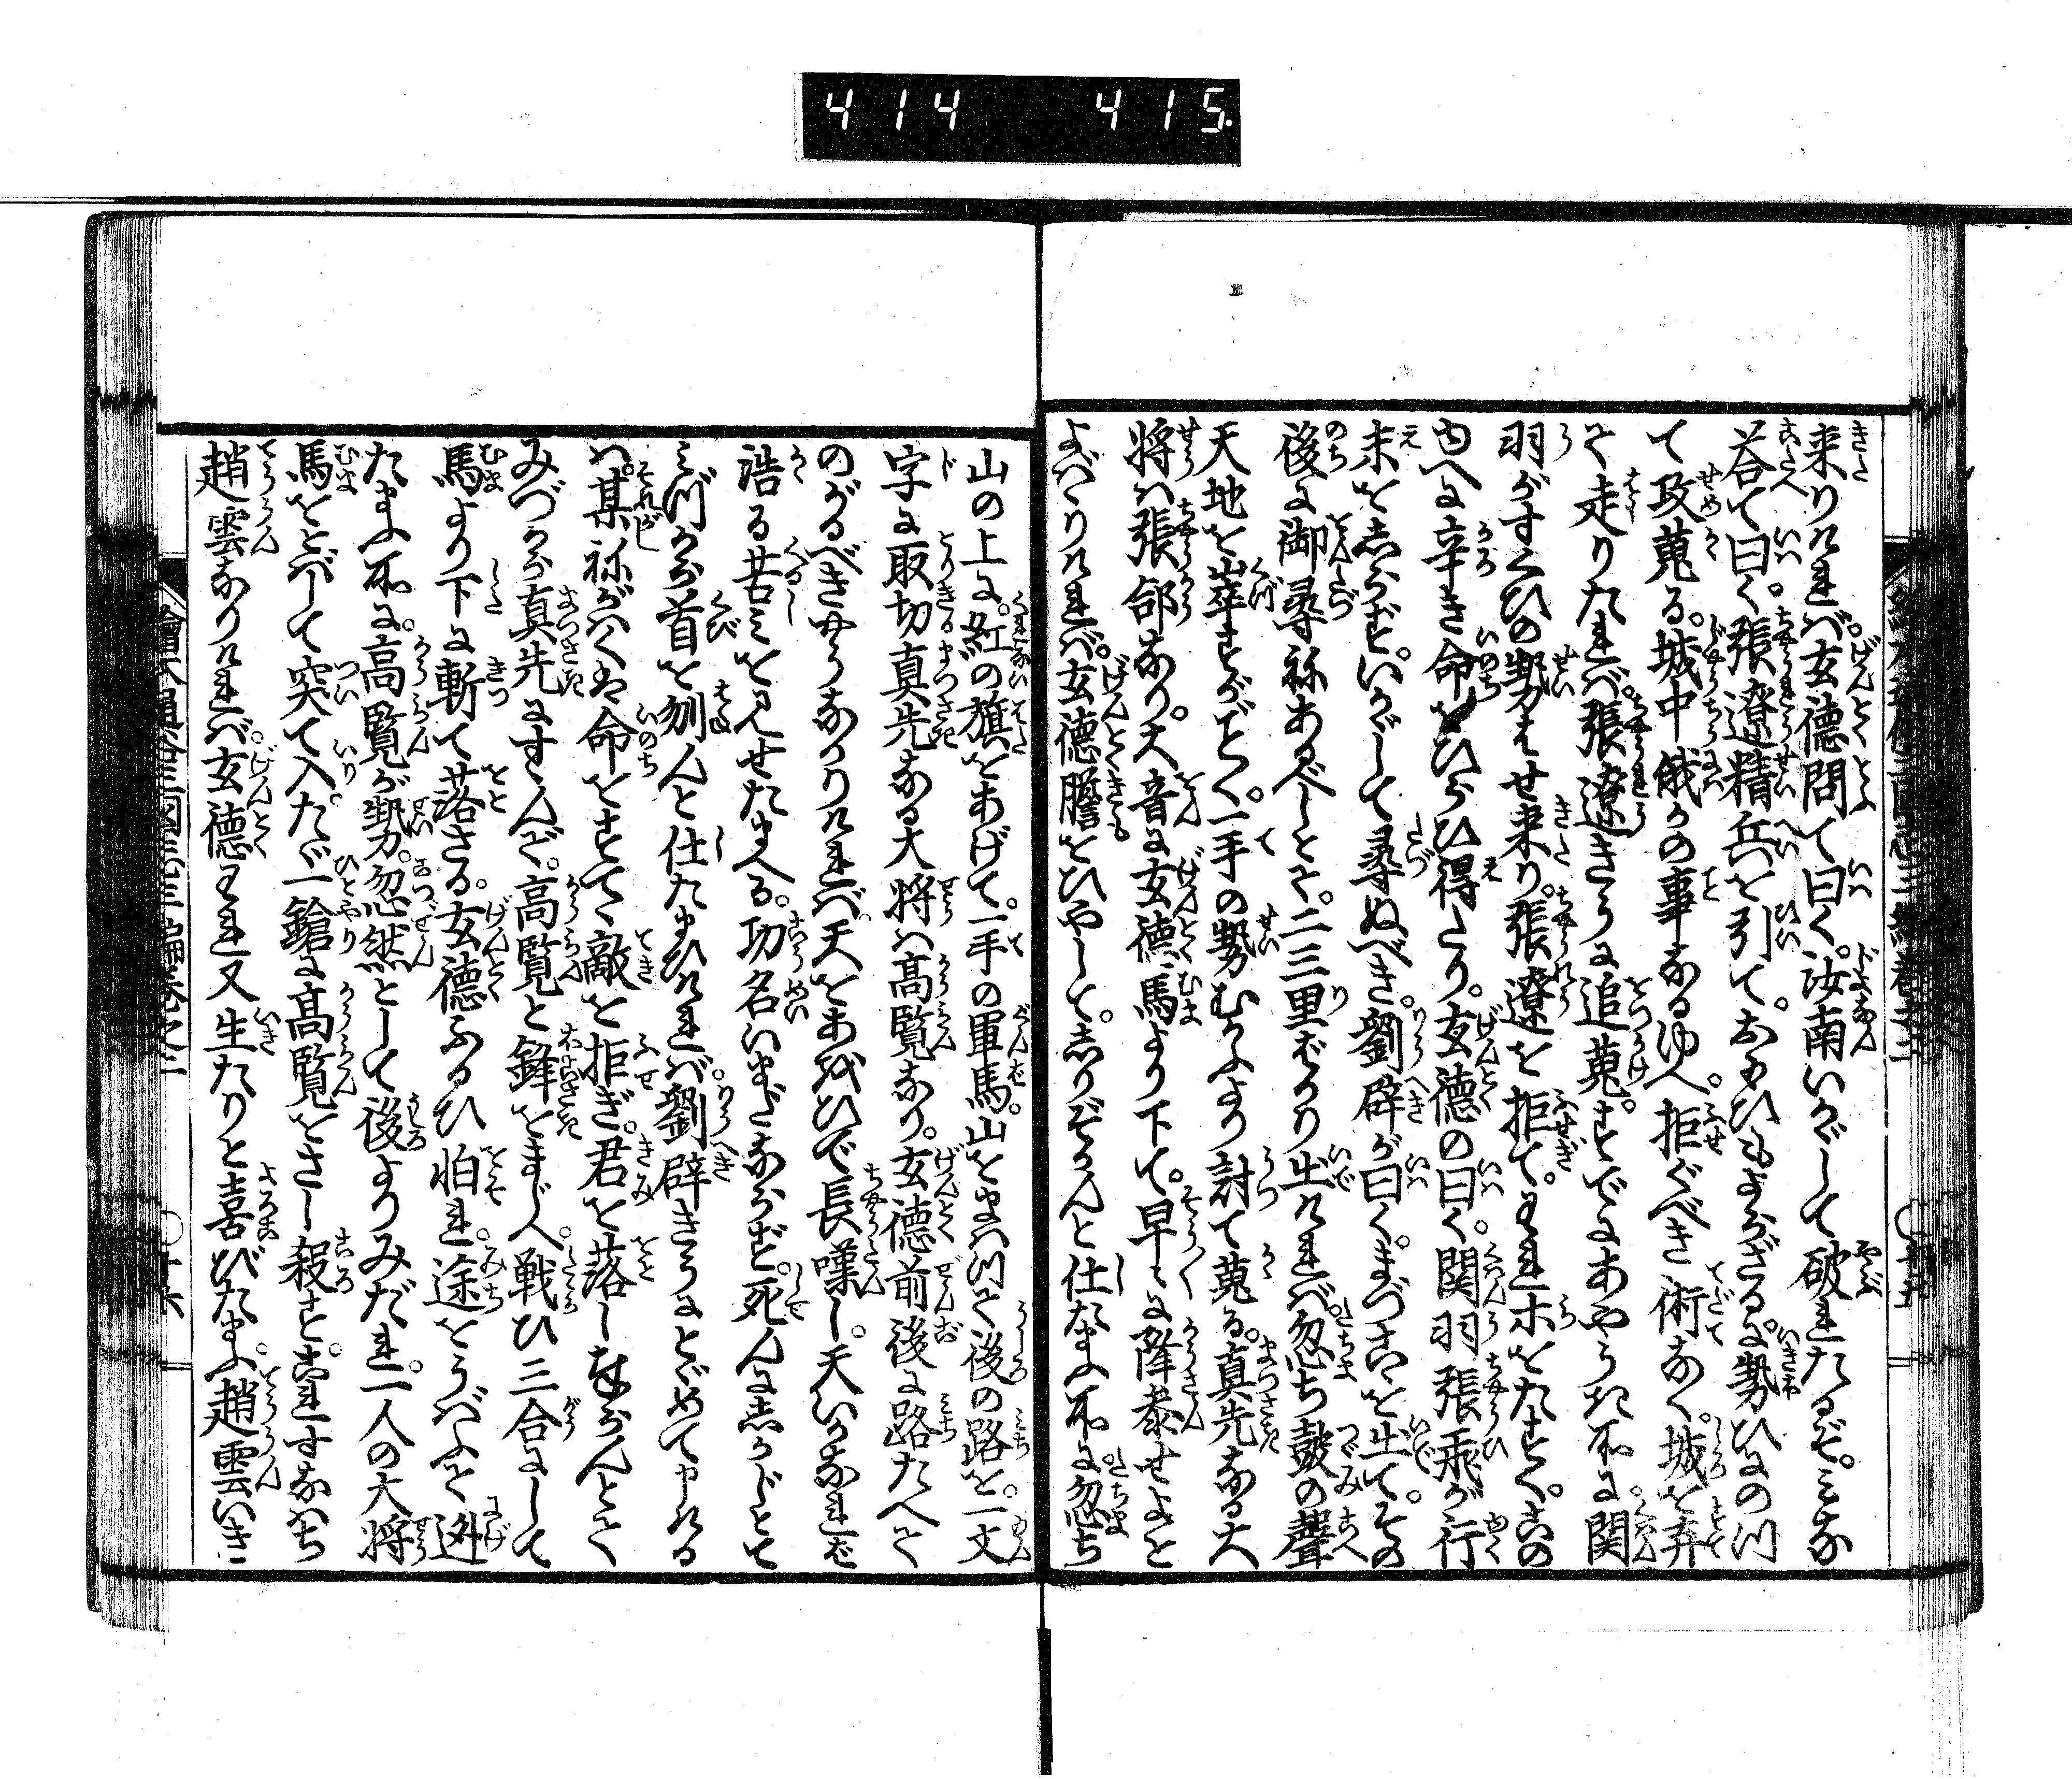 414 415
来りければ。玄徳問て曰く。汝南いかがして破れたるぞ。みな
荅て曰く。張遼精兵を引て。おもひもよらざるに勢ひよの川
て攻蒐る。城中俄かの事なるゆへ。拒ぐべき術なく。城を弃
て走りたれば。張遼きうに追蒐。すでにあやうき所に。関
羽がすくひの勢はせ来り。張遼を拒て。われ木をたすく。この
ゆへに辛き命をひろひ得たり。玄徳の曰く。関羽張飛が行
末をしらず。いかがして尋ぬべき。劉辟が曰く。まづこれを出て。その
後に御尋ねあるべしとて。二三里ばかり出ければ。忽ち鼓の聲
天地を崒すがごとく。一手の勢むかふより討て蒐る。真先なる大
将は張郃なり。大音に玄徳馬より下て。早々に降参せよと
よばりければ。玄徳膽をひやして。しりぞかんと仕たまふ所に忽ち
山の上に。紅の旗をあげて。一手の軍馬。山をまはつて後の路を。一文
字に取切真先なる大将は高覧なり。玄徳前後に路たへて
のがるべきやうなかりければ天をあふひで長嘆し。天いかなれば
浩る苦みを見せたまへる。功名いまだならず。死んにしかじとて
みづから首を刎んと仕たまひければ。劉辟きうにとどめて申ける
は。某ねがはくは命をすてて敵を拒ぎ。君を落しまゐらんとて
みづから真先にすすんで。高覧と鋒をまじへ。戦ひ三合にして
馬より下に斬て落さる。玄徳ふるひ怕れ。途をうばふて逃
たまふ所に。高覧が勢。忽然として後よりみだれ。一人の大将
馬をとばして突て入。ただ一鎗に高覧をさし殺す。これすなはち
趙雲なりければ。玄徳われ又生たりと喜びたまふ。趙雲いき